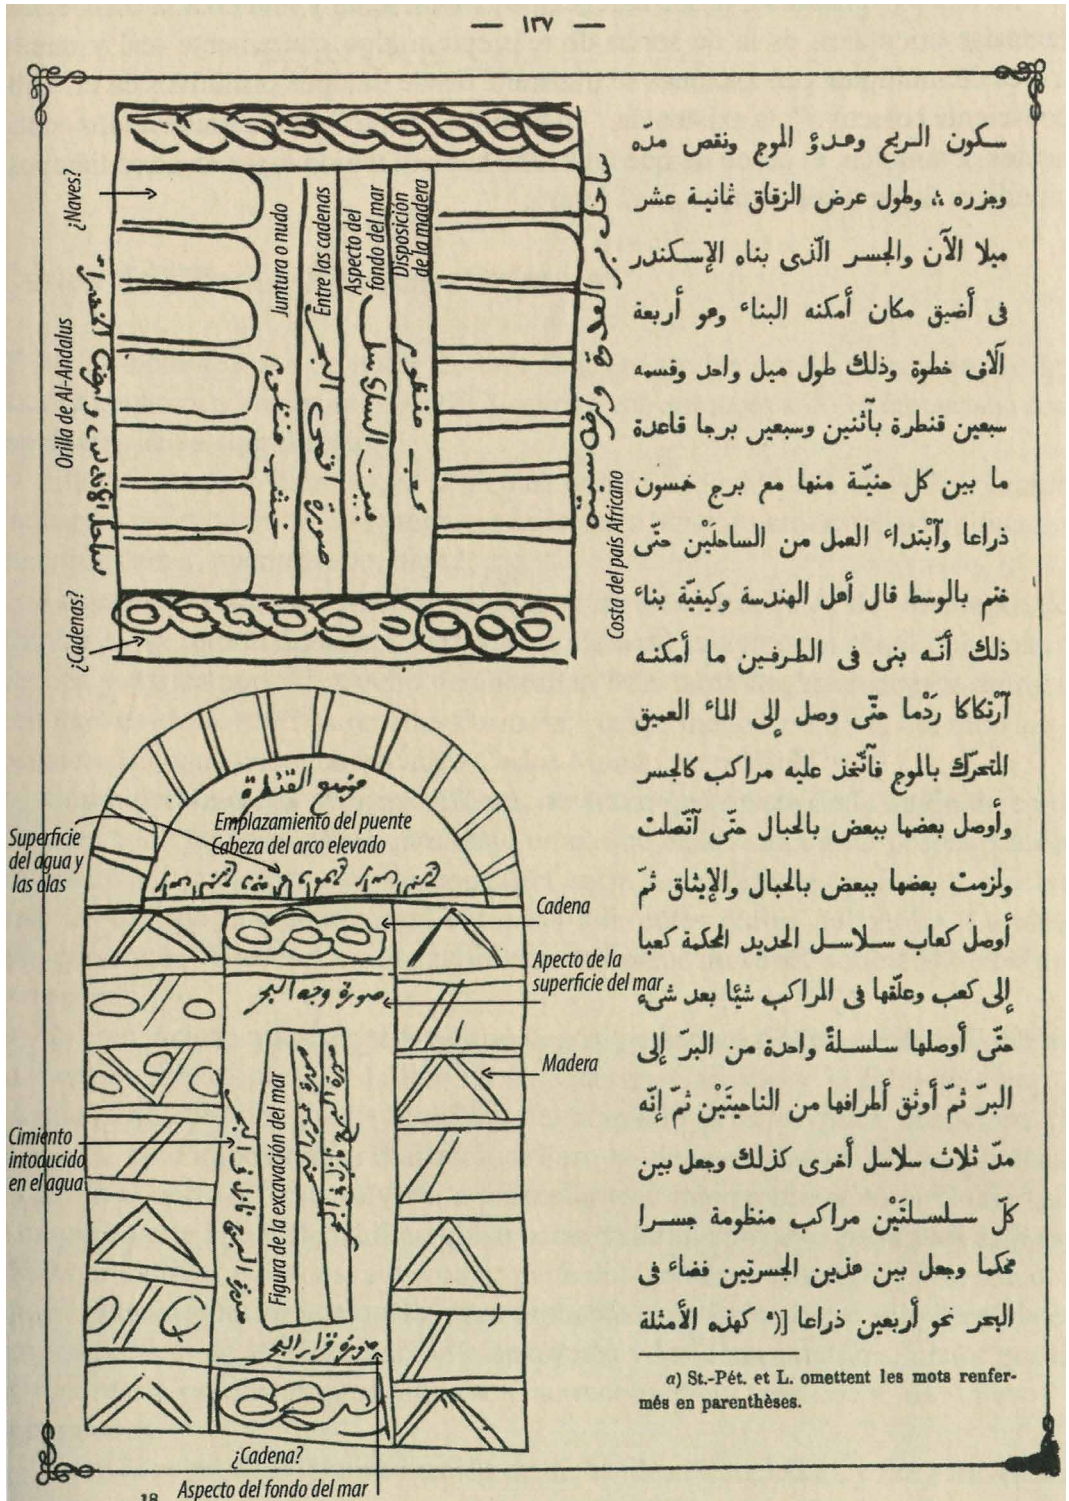 — ١٣٧ —
سكون الريح وهدؤ الموج ونقص مدّه
وجزره ؞ وطول عرض الزقاق ثمانية عشر
ميلا الآن والجسر الّذى بناه الإسكندر
فى أضيق مكان أمكنه البناء وهو أربعة
آلاف خطوة وذلك طول ميل واحد وقسمه
سبعين قنطرة بآثنين وسبعين برجا قاعدة
ما بين كل حنيّة منها مع برج خمسون
ذراعا وآبْتداء العمل من الساحلَيْن حتّى
ختم بالوسط قال أهل الهندسة وكيفيّة بناء
ذلك أنّه بنى فى الطرفين ما أمكنه
آرْتكاكا رَدْما حتّى وصل إلى الماء العميق
المتحرّك بالموج فآتّخذ عليه مراكب كالجسر
وأوصل بعضها ببعض بالحبال حتّى آتّصلت
ولزمت بعضها ببعض بالحبال والإيثاق ثمّ
أوصل كعاب سلاسل الحديد المحكمة كعبا
إلى كعب وعلّقها فى المراكب شيًا بعد شىء
حتّى أوصلها سلسلةً واحدة من البرّ إلى
البرّ ثمّ أوثق أطرافها من الناحيتَيْن ثمّ إنّه
مدّ ثلاث سلاسل أخرى كذلك وجعل بين
كلّ سلسلتَيْن مراكب منظومة جسرا
محكما وجعل بين هذين الجسرتين فضاء فى
البحر نحو أربعين ذراعا [(a كهذه الأمثلة
a) St.-Pét. et L. omettent les mots renfer-
més en parenthèses.
¿Naves?
Orilla de Al-Andalus
ساحل الاندلس وارض الخضراء
¿Cadenas?
Juntura o nudo
خشب منظوم
Entre las cadenas
صورة البحر
Aspecto del
fondo del mar
بين السلاسل
Disposición
de la madera
منظوم
ساحل بر العدوة وارض سبتة
Costa del país Africano
موضع القنطرة
Emplazamiento del puente
Cabeza del arco elevado
Superficie
del agua y
las olas
Cadena
Apecto de la
superficie del mar
صورة وجه البحر
Madera
Cimiento
intoducido
en el agua
صورة البرج نازل فى البحر
Figura de la excavación del mar
صورة البرج نازل فى البحر
صورة قرار البحر
¿Cadena?
Aspecto del fondo del mar
18